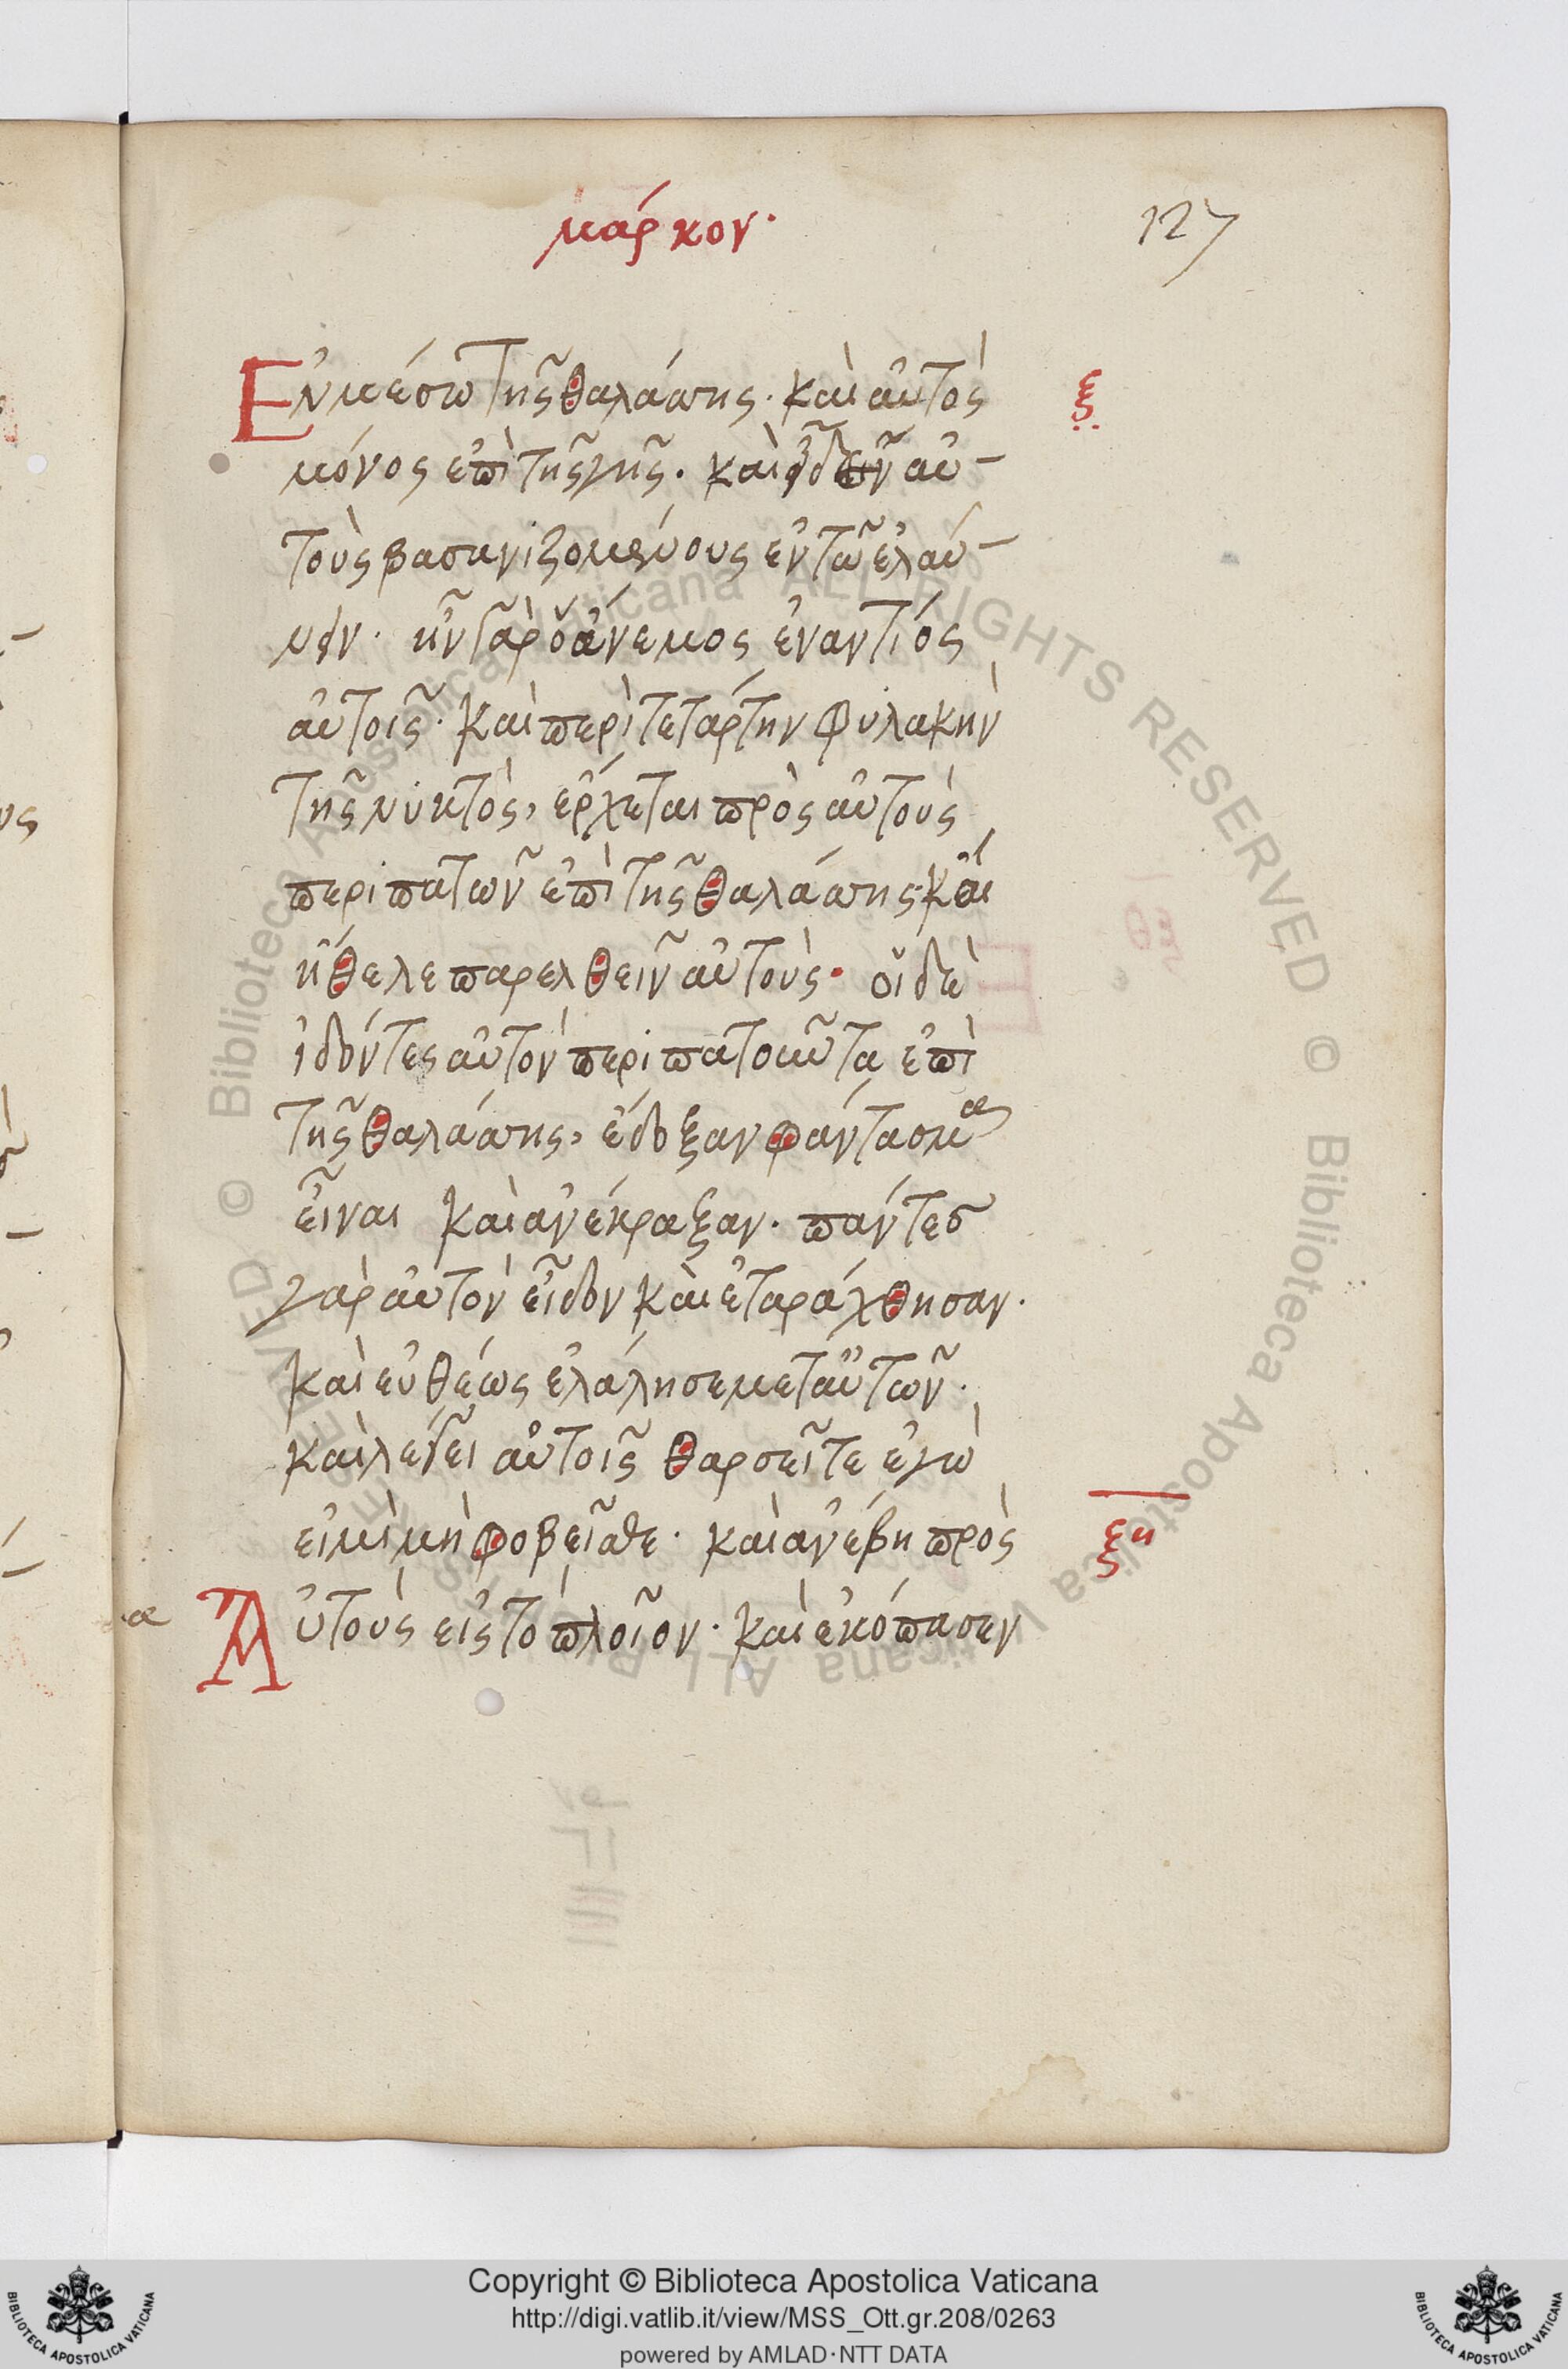 μάρκον·
127
Ἐν μέσω τῆς θαλάσσης· καὶ αὐτὸς
ξ
μόνος ἐπὶ τῆς γῆς· καὶ αὐ-
τοὺς βασανιζομένους ἐν τῶ ἐλαύ-
νειν· ἦν γὰρ ὁ ἄνεμος ἐναντίος
αὐτοῖς· καὶ περὶ τετάρτην φυλακὴν
τῆς νυκτὸς, ἔρχεται πρὸς αὐτοὺς
περιπατῶν ἐπὶ τῆς θαλάσσης· καὶ
ἤθελε παρελθεῖν αὐτούς· οἱ δὲ
ἰδόντες αὐτὸν περιπατοῦντα ἐπὶ
τῆς θαλάσσης, ἔδοξαν φάντασμα
εἶναι καὶ ἀνέκραξαν· πάντες
γὰρ αὐτὸν εἶδον καὶ ἐταράχθησαν·
καὶ εὐθέως ἐλάλησε μετ αὐτῶν·
καὶ λέγει αὐτοῖς θαρσεῖτε ἐγὼ
εἰμὶ μὴ φοβεῖσθε· καὶ ἀνέβη πρὸς
ξη
Αὐτοὺς εἰς τὸ πλοῖον· καὶ ἐκόπασεν
Copyright © Biblioteca Apostolica Vaticana
http://digi.vatlib.it/view/MSS_Ott.gr.208/0263
powered by AMLAD·NTT DATA